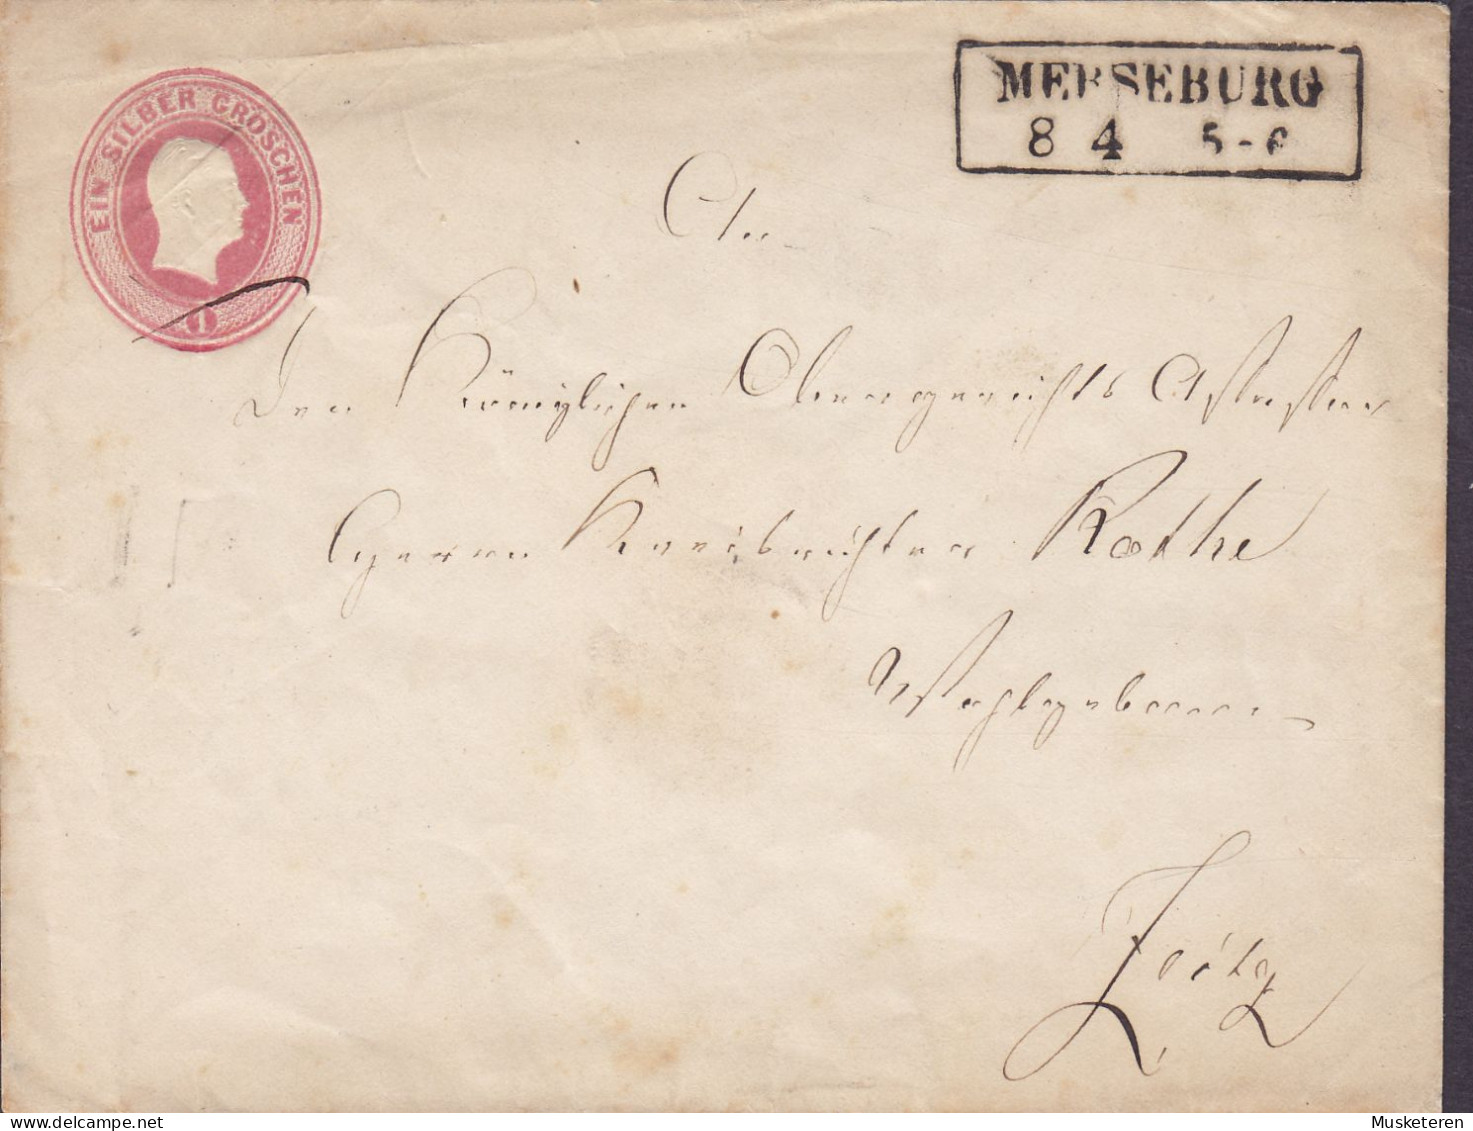 EIN SILBER GROSCHEN
1
MERSEBURG
8 4 5-6
An
Den Königlichen Obergerichts Assessor
Herrn Kreisrichter Rothe
Wohlgeboren
Zeitz
Musketeren